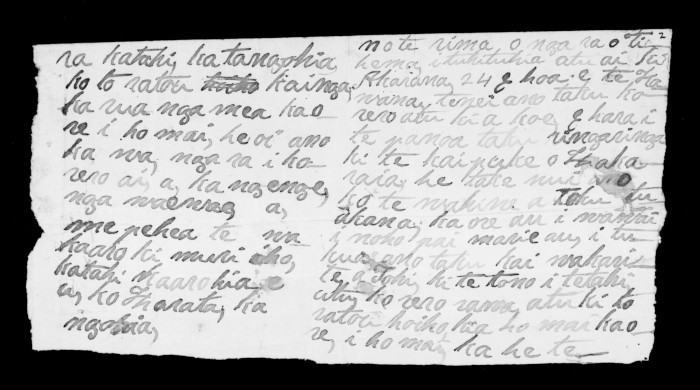 ra katahi, ka tangohia
ko to ratou kainga,
ka wa nga mea kao
re i ho mai, he oi ano
ka wa, nga ra i ko
rero ai, a, ka ngenge,
nga waewae, a,
me pehea te wa
kaaro ki muri iho,
katahi kaarohia e
u, ko Harata, ka
ngohia,
2
no te rima o nga ra o Ti
hema i tuhituhia atu ai ki
Akarana, 24 E hoa e te Ka
wana, tenei ano taku ko
rero atu ki a koe, E hara i
te panga taku ringaringa
ki te kaipuke o Haka
raia, he take nui
ko te wahine a taku tu
akana, kaore au i
i noho pai marie au, i tu
kua ano taku kai wakari
te a Tohi, ki te tono i tetahi
utu, ko rero rawa atu ki to
ratou hoihokia ho mai kao
re, i ho mai, ka he te